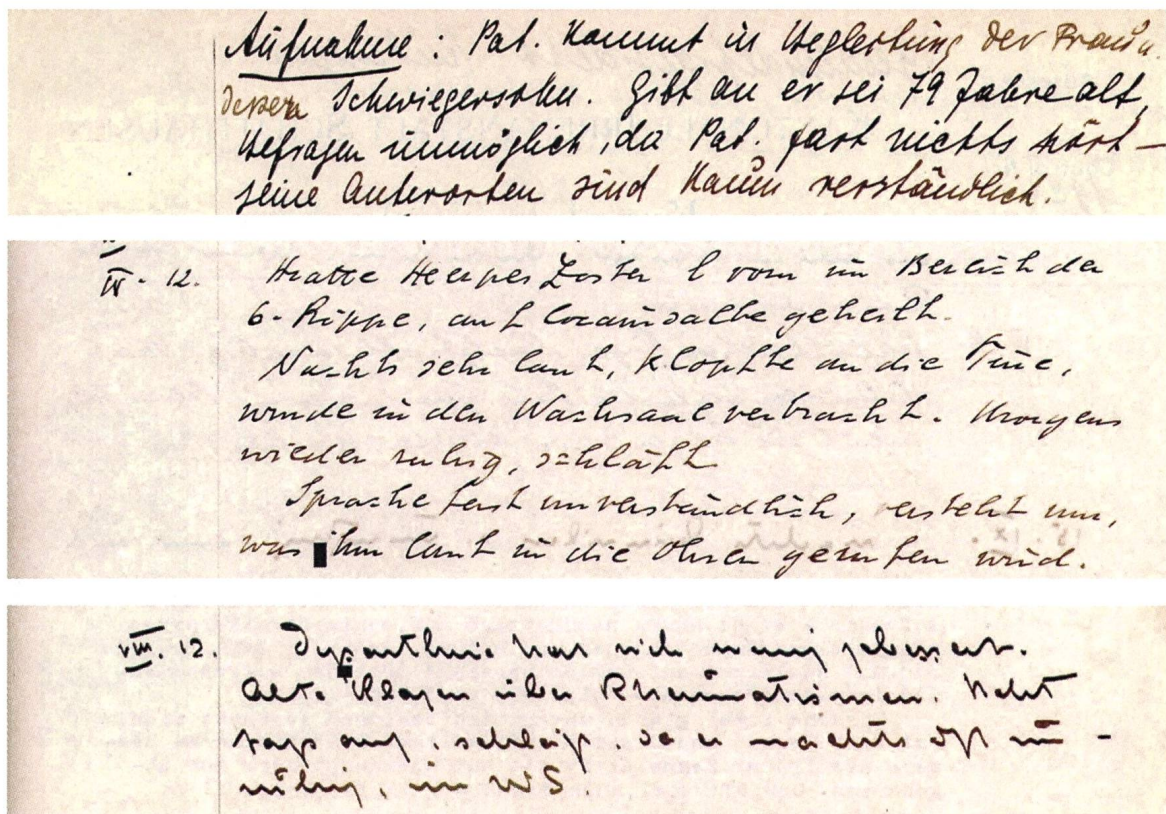 Aufnahme : Pat. kommt in Begleitung der Frau u.
dessen Schwiegersohn. Gibt an er sei 79 Jahre alt,
Befragen unmöglich, da Pat. fast nichts hört –
seine Antworten sind kaum verständlich.
IV. 12. Hatte Herpes Zoster l vorn im Bereich der
6. Rippe, auf Cocainsalbe geheilt.
Nachts sehr laut, klopfte an die Türe,
wurde in den Wachsaal verbracht. Morgens
wieder ruhig, schläft
Sprache fast unverständlich, versteht nur,
was ihm laut in die Ohren gerufen wird.
VIII. 12. Dysarthrie hat sich wenig gebessert.
Alte Klagen über Rheumatismen. Steht
tags auf, schläft da er nachts oft un-
ruhig, im WS